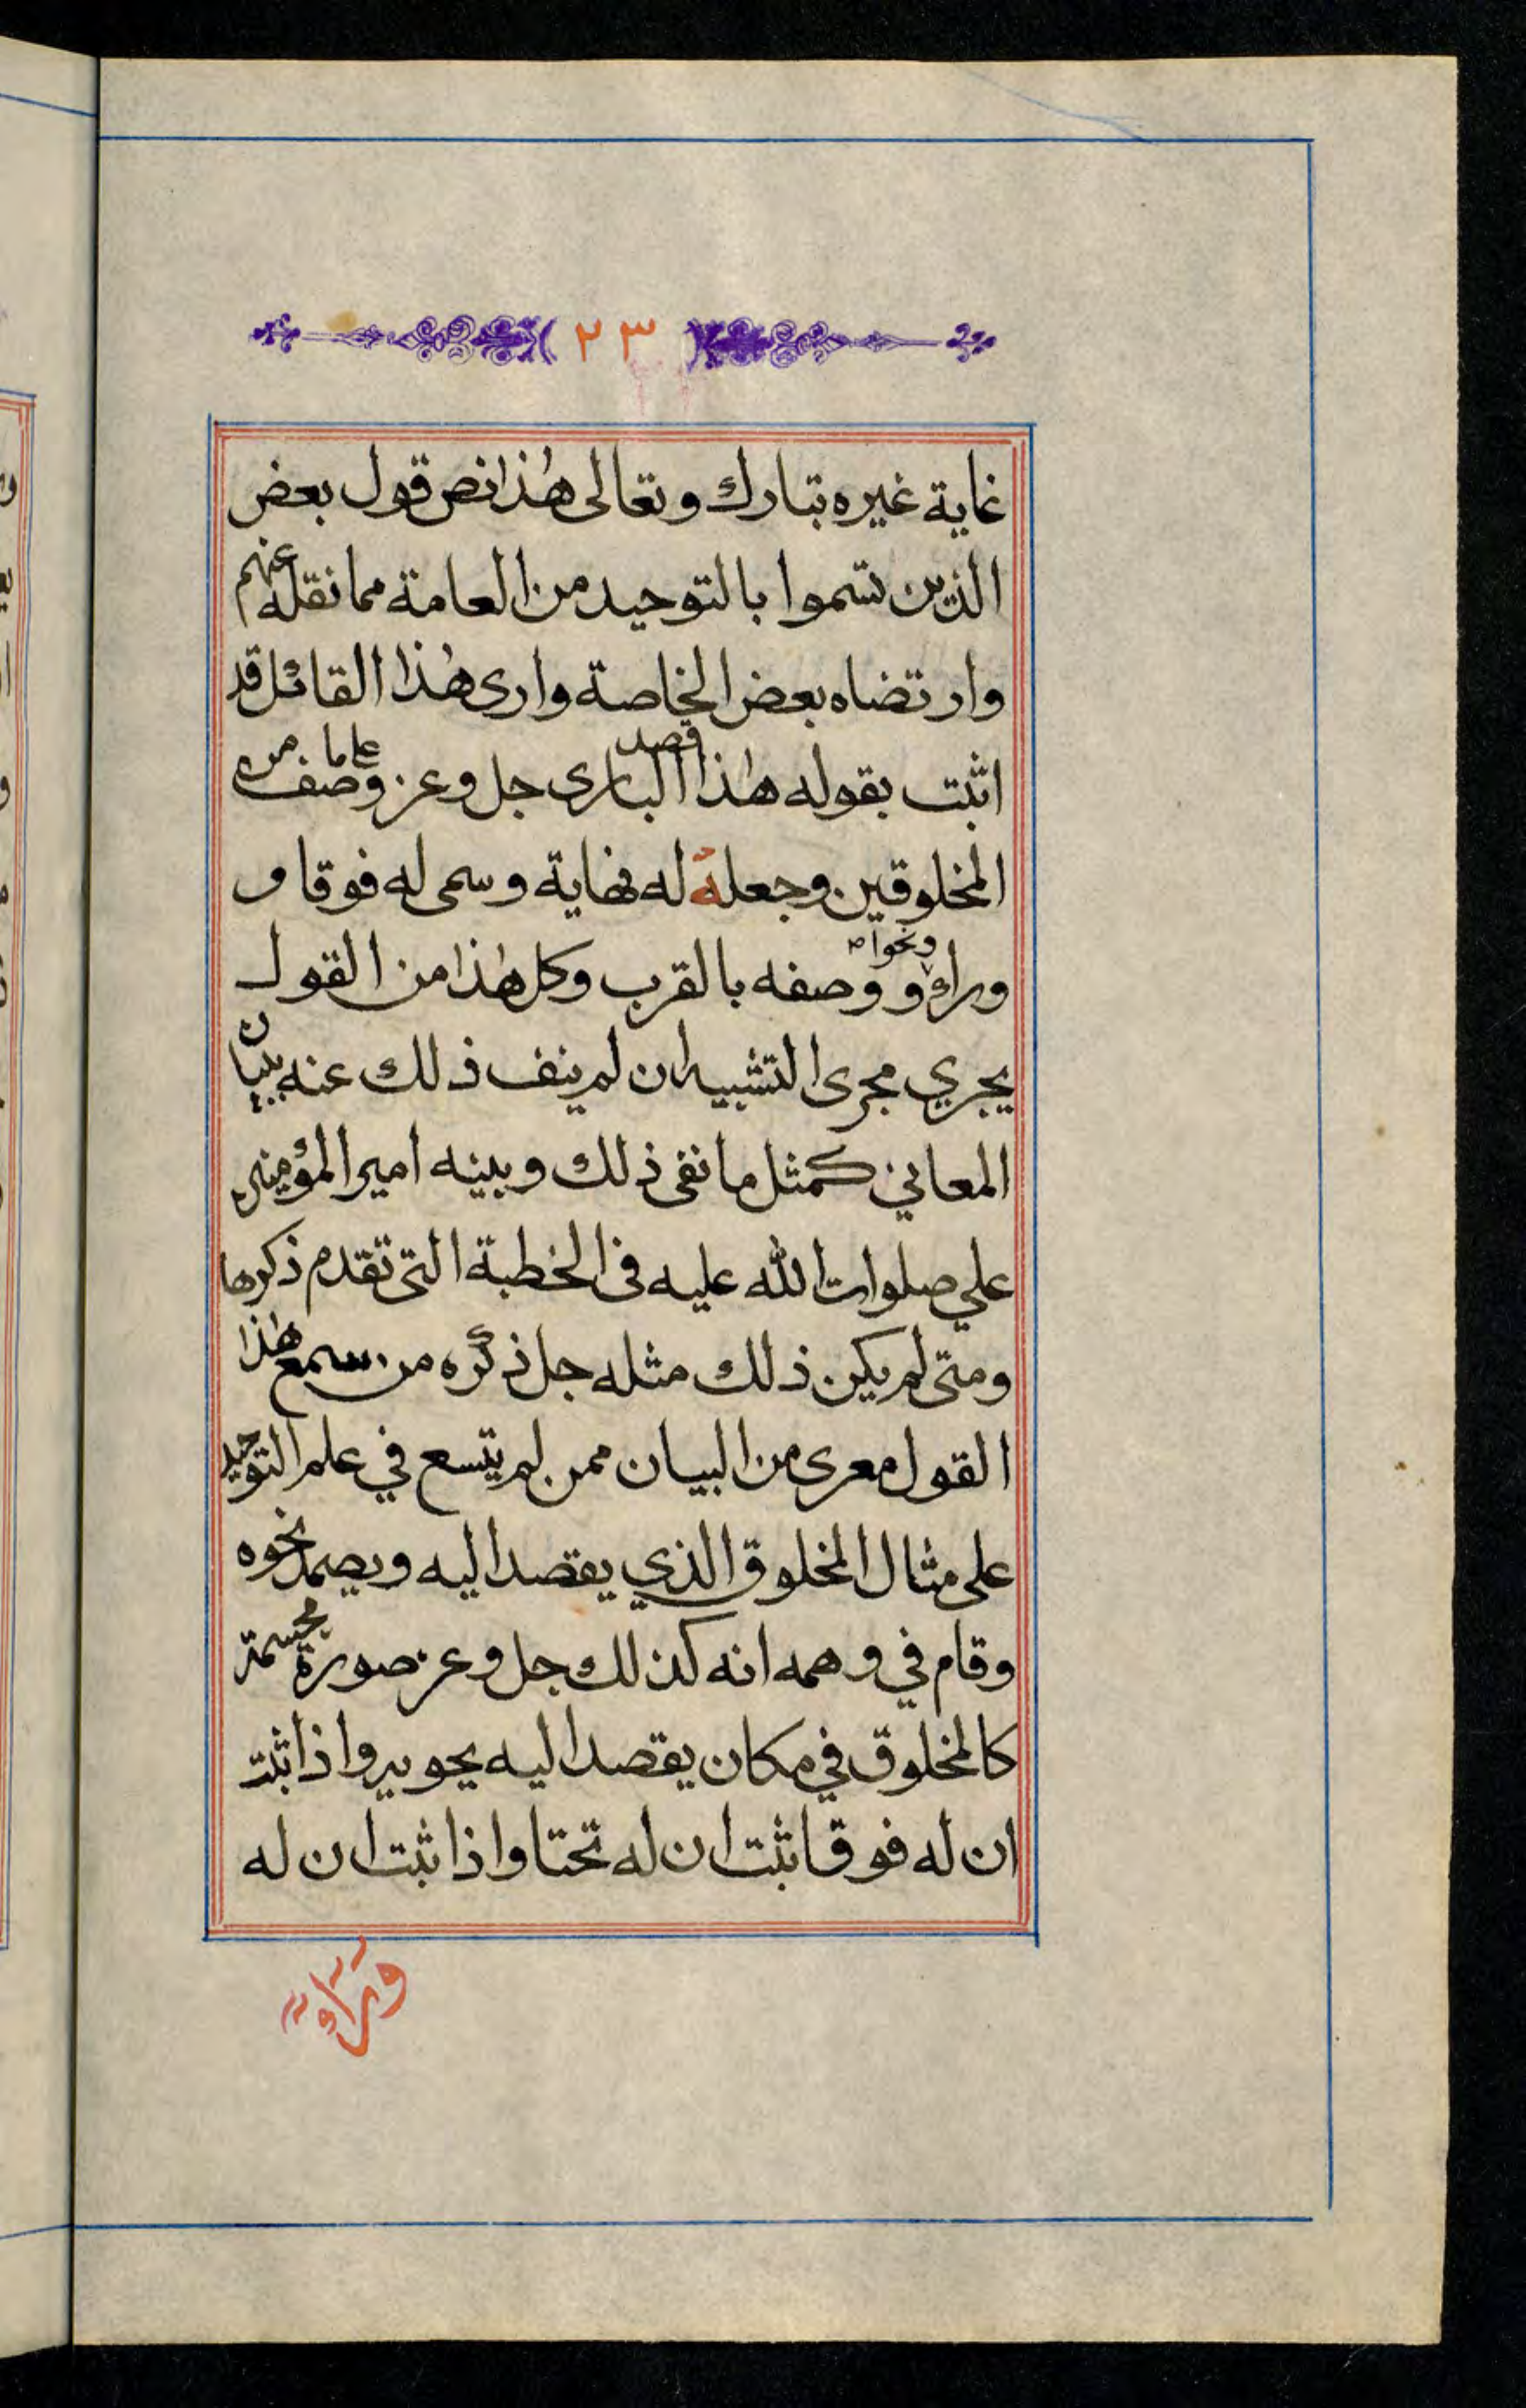 ٢٣
غاية غيره تبارك وتعالى هذا نص قول بعض
الذين تسموا بالتوحيد من العامة مما نقله عنهم
وارتضاه بعض الخاصة وارى هذا القائل قد
اثبت بقوله هذا قصد البارى جل وعز وصف على ما من
المخلوقين وجعله له نهاية وسمى له فوقا و
وراء ونحوا ووصفه بالقرب وكل هذا من القول
يجري مجرى التشبيه ان لم ينف ذلك عنه ببيان
المعاني كمثل ما نفى ذلك وبينه امير المؤمنين
علي صلوات الله عليه فى الخطبة التى تقدم ذكرها
ومتى لم يكن ذلك مثله جل ذكره من سمع هذا
القول معرى من البيان ممن لم يتسع في علم التوحيد
على مثال المخلوق الذي يقصد اليه ويصمد نحوه
وقام في وهمه انه كذلك جل وعز صورة مجسمة
كالمخلوق في مكان يقصد اليه يحويه واذا ثبت
ان له فوقا ثبت ان له تحتا واذا ثبت ان له
وراء